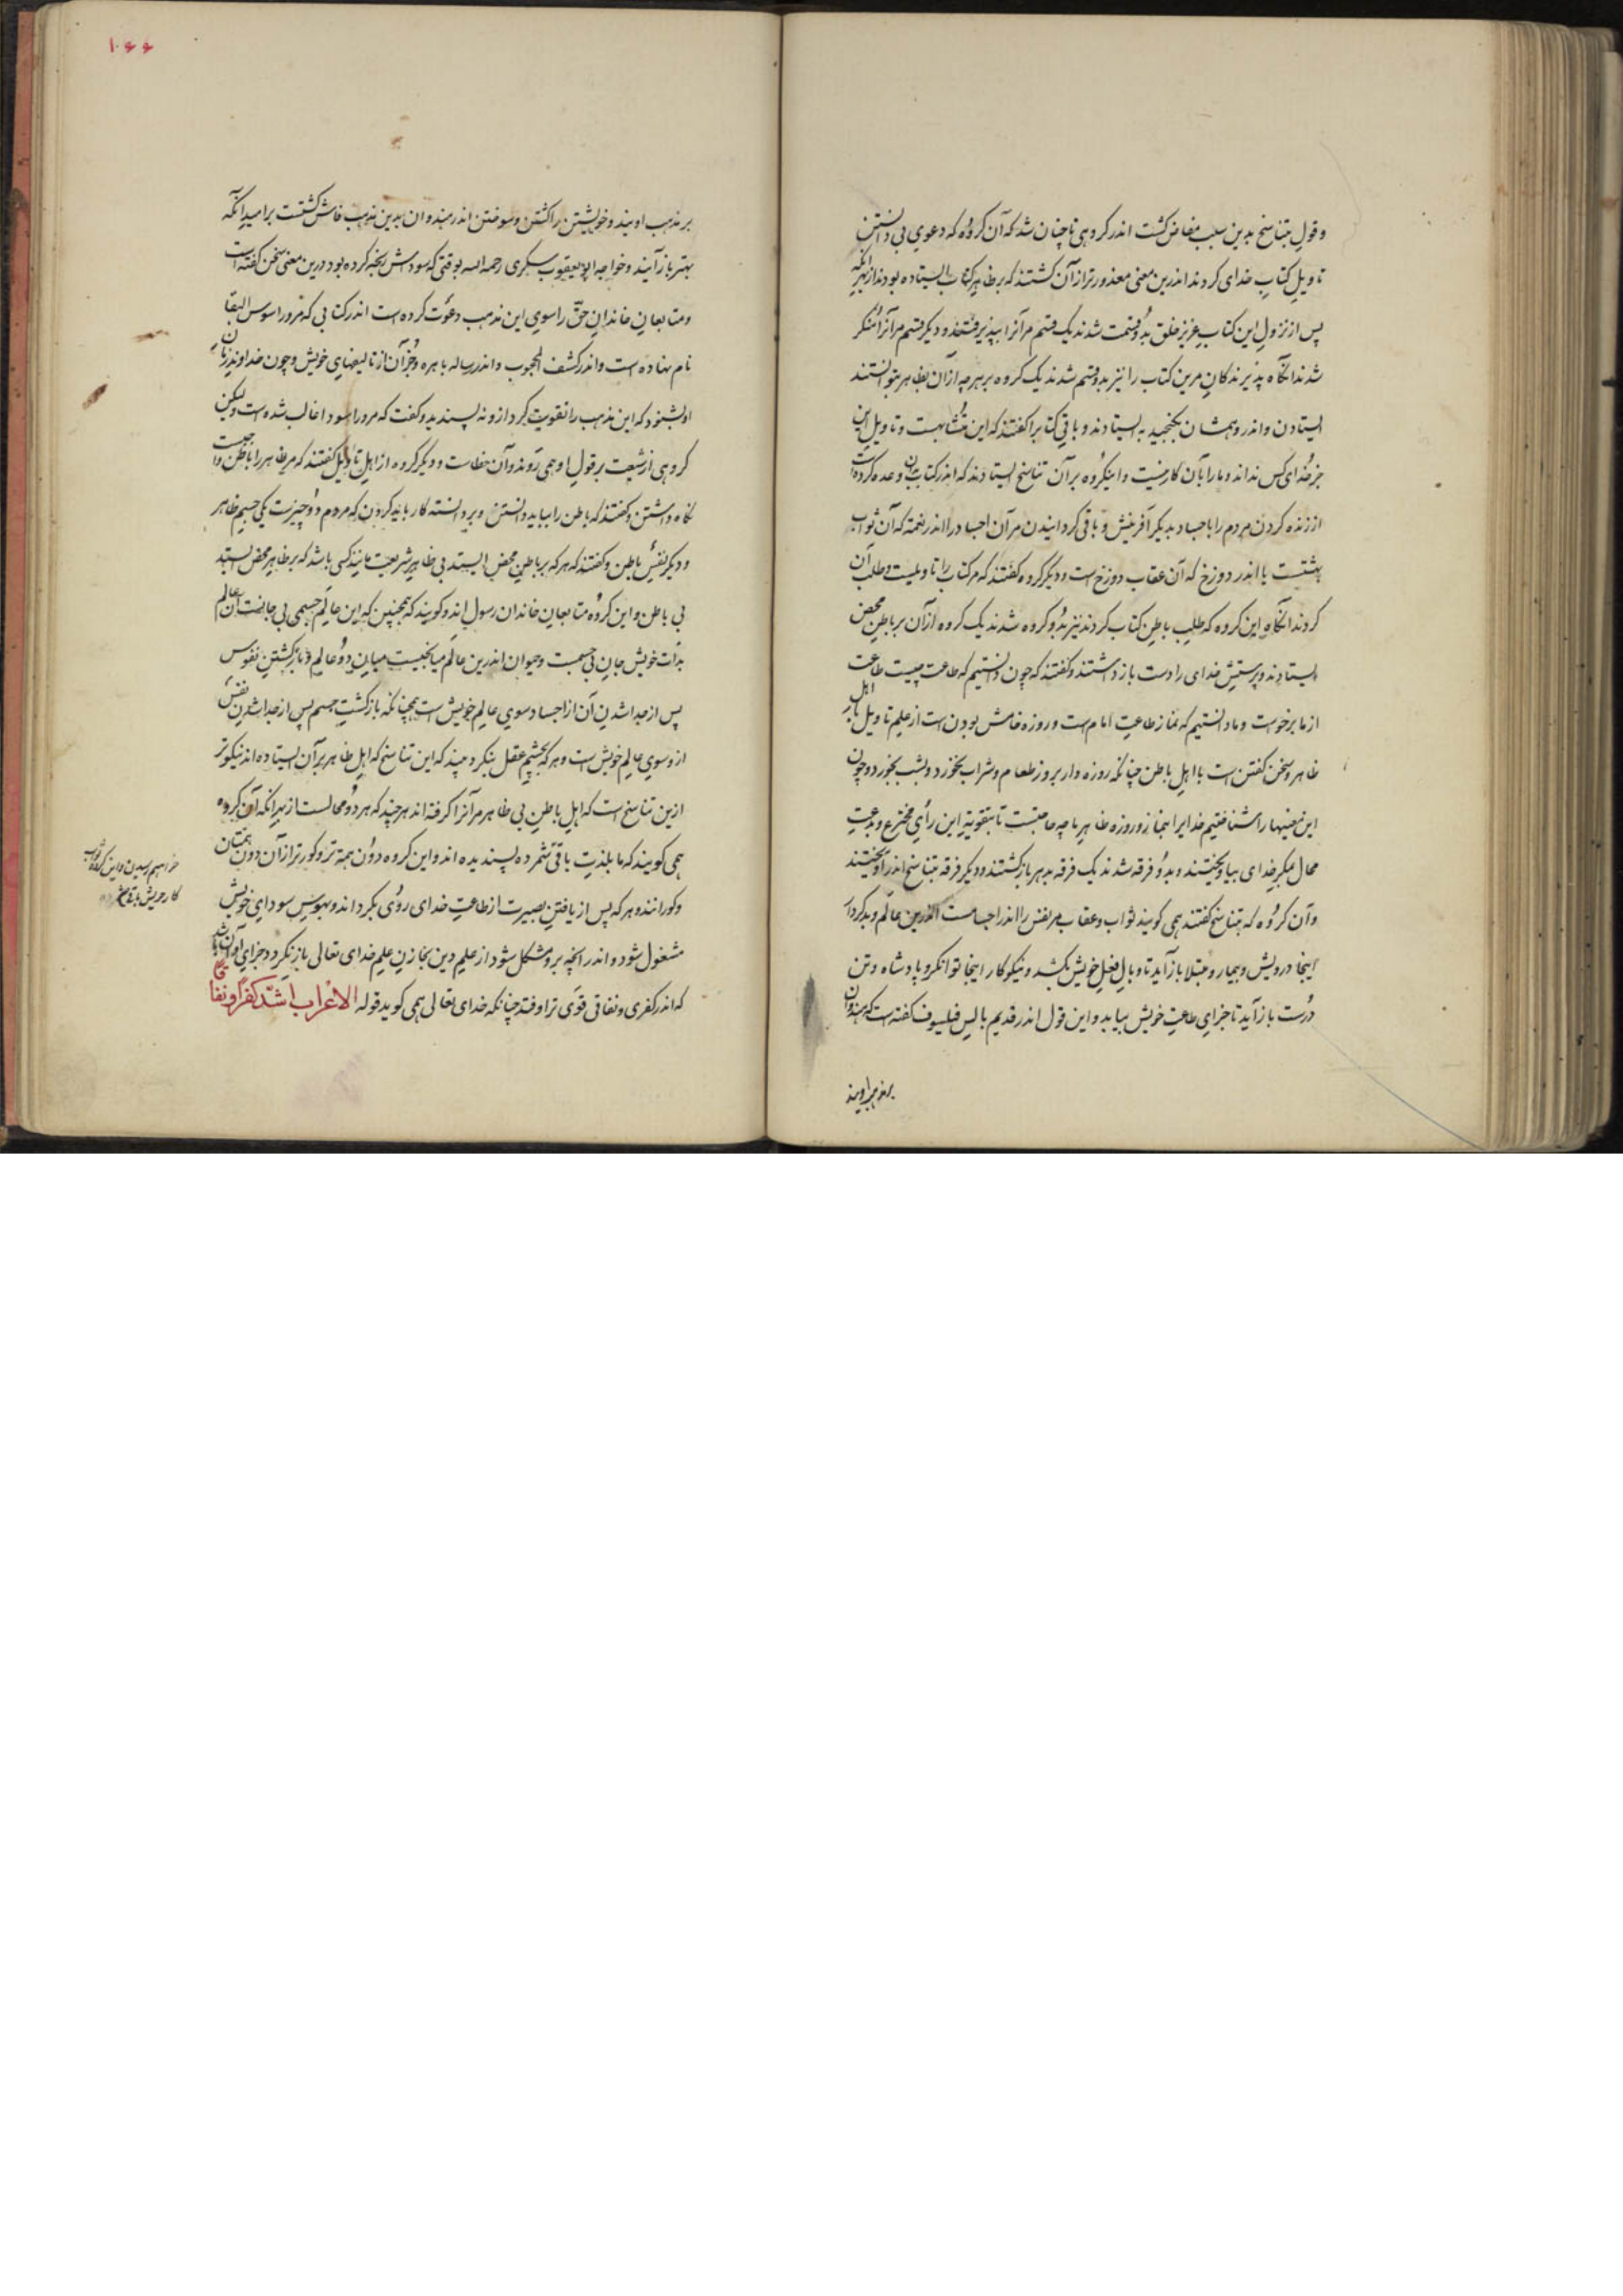 و قول بتناسخ بدین سبب مفاض گشت اندر گروهی تا چنان شد که آن گروه که دعوی بی دانستن
تاویل کتاب خدای کردند اندرین معنی معذورتر از آن گشتند که بر ظاهر کتاب ایستاده بودند از بهر آنکه
پس از نزول این کتاب عزیز خلق بدو قسمت شدند یک قسم مر آنرا بپذیرفتند و دیگر قسم مر آنرا منکر
شدند آنگاه پذیرندگان مرین کتاب را نیز بدو قسم شدند یک گروه بر هر چه از آن بظاهر بتوانستند
ایستادن و اندر وهمشان بگنجید بایستادند و باقی کتابرا گفتند که این متشابهست و تاویل این
جز خدای کس نداند و ما را بآن کار نیست و اینگروه بر آن تناسخ ایستادند که اندر کتاب بدان وعده کرده است
از زنده کردن مردم را باجساد بدیگر آفرینش و باقی گردانیدن مر آن اجساد را اندر نعمة که آن ثواب
بهشتست یا اندر دوزخ که آن عقاب دوزخ است و دیگر گروه گفتند که مر کتاب را تاویلست و طلب آن
کردند آنگاه این گروه که طلب باطن کتاب کردند نیز بدو گروه شدند یک گروه از آن بر باطن محض
ایستادند و پرستش خدای را دست باز داشتند و گفتند که چون دانستیم که طاعت چیست طاعت
از ما برخوست و ما دانستیم که نماز طاعت امام است و روزه خامش بودن است از علم تاویل با اهل
ظاهر و سخن گفتن است با اهل باطن چنانکه روزه دار بروز طعام و شراب نخورد و بشب بخورد و چون
این معنیها را شناختیم خدایرا بنماز و روزه ظاهر ما چه حاجتست تا بتقویة این رأی مخترع و بدعت
محال بمکر خدای بیاویختند و بدو فرقه شدند یک فرقه بدهر بازگشتند و دیگر فرقه بتناسخ اندر آویختند
و آن گروه که بتناسخ گفتند همی گویند ثواب و عقاب مر نفس را اندر اجسامست اندرین عالم و بدکردار
اینجا درویش و بیمار و مبتلا باز آید تا وبال فعل خویش بکشد و نیکوکار اینجا توانگر و پادشاه و تن
درست باز آید تا جزای طاعت خویش بیابد و این قول اندر قدیم بالیس فیلسوف گفته است که هندوان
بر مذهب اویند
۱۰۶۶
بر مذهب اویند و خویشتن را کشتن و سوختن اندر هندوان بدین مذهب فاش گشتست بر امید آنکه
بهتر باز آیند و خواجه ابو یعقوب سگزی رحمه الله بوقتی که سوداش رنجه کرده بود درین معنی سخن گفته است
و متابعان خاندان حق را سوی این مذهب دعوت کرده است اندر کتابی که مرو را سوس البقا
نام نهاده است و اندر کشف المحجوب و اندر رساله باهره و جز آن از تالیفهای خویش و چون خداوند زمان
او بشنود که این مذهب را تقویت کرد ازو نه پسندید و گفت که مرو را سودا غالب شده است ولیکن
گروهی از شیعت بر قول او همی روند و آن خطاست و دیگر گروه از اهل تاویل گفتند که مر ظاهر را با باطن واجبست
نگاه داشتن و گفتند که باطن را بباید دانستن و بر دانسته کار باید کردن که مردم دو چیزست یکی جسم ظاهر
و دیگر نفس باطن و گفتند که هر که بر باطن محض ایستد بی ظاهر شریعت مانند کسی باشد که بر ظاهر محض ایستد
بی باطن و این گروه متابعان خاندان رسول اند و گویند که همچنین که این عالم جسمی بی جانست آن عالم
بذات خویش جان بی جسمست و حیوان اندرین عالم میانجیست میان دو عالم و بازگشتن نفوس
پس از جدا شدن آن از اجساد سوی عالم خویش است همچنانکه بازگشت جسم پس از جدا شدن نفس
ازو سوی عالم خویش است و هر که بچشم عقل بنگرد بیند که این تناسخ که اهل ظاهر بر آن ایستاده اند نیکوتر
ازین تناسخ است که اهل باطن بی ظاهر مر آنرا گرفته اند هر چند که هر دو محالست از بهر آنکه آن گروه
همی گویند که ما بلذت باقی شمرده پسندیده اند و این گروه دون همه تر و کورتر از آن دون همتان
و کورانند و هر که پس از یافتن بصیرت از طاعت خدای روی بگرداند و بهوس سودای خویش
مشغول شود و اندر آنچه برو مشکل شود از علم دین بخازن علم خدای تعالی باز نگردد جزای او آن باشد
که اندر کفری و نفاقی قوی تر اوفتد چنانکه خدای تعالی همی گوید قوله الاعراب اشد کفرا و نفاقا
خواهیم رسیدن و این گروه ثواب
کار خویش